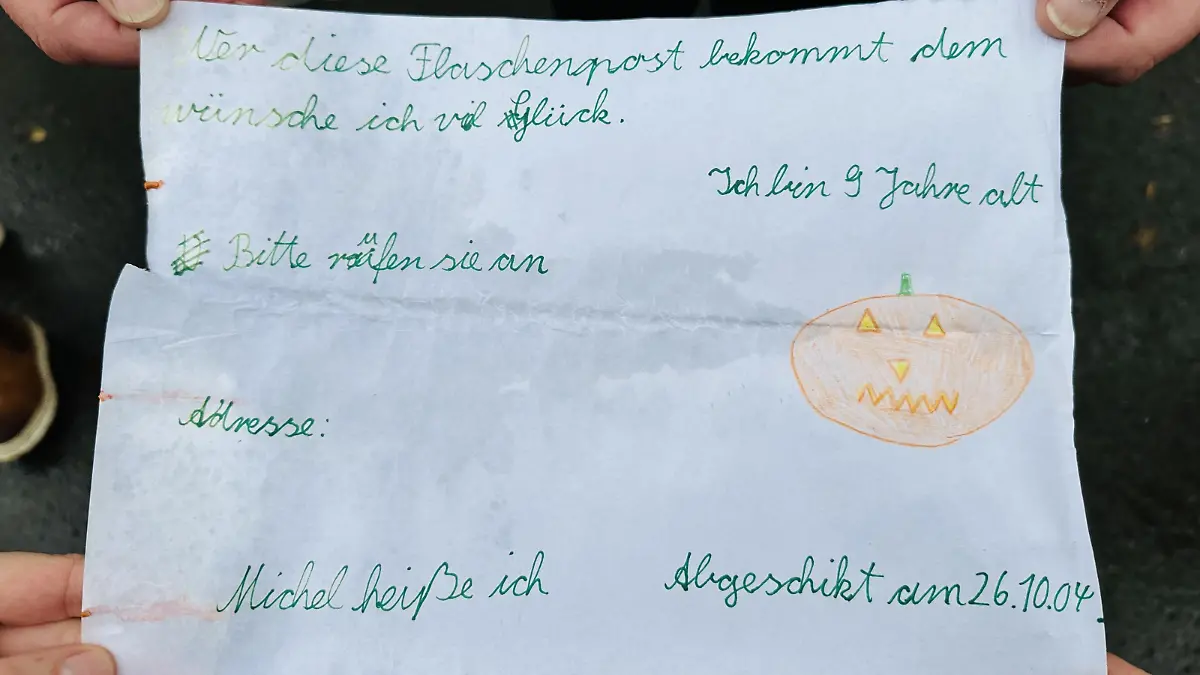 Wer diese Flaschenpost bekommt dem
wünsche ich vil Glück.
Ich bin 9 Jahre alt
Bitte rüfen sie an
Adresse:
Michel heiße ich
Abgeschikt am 26.10.04